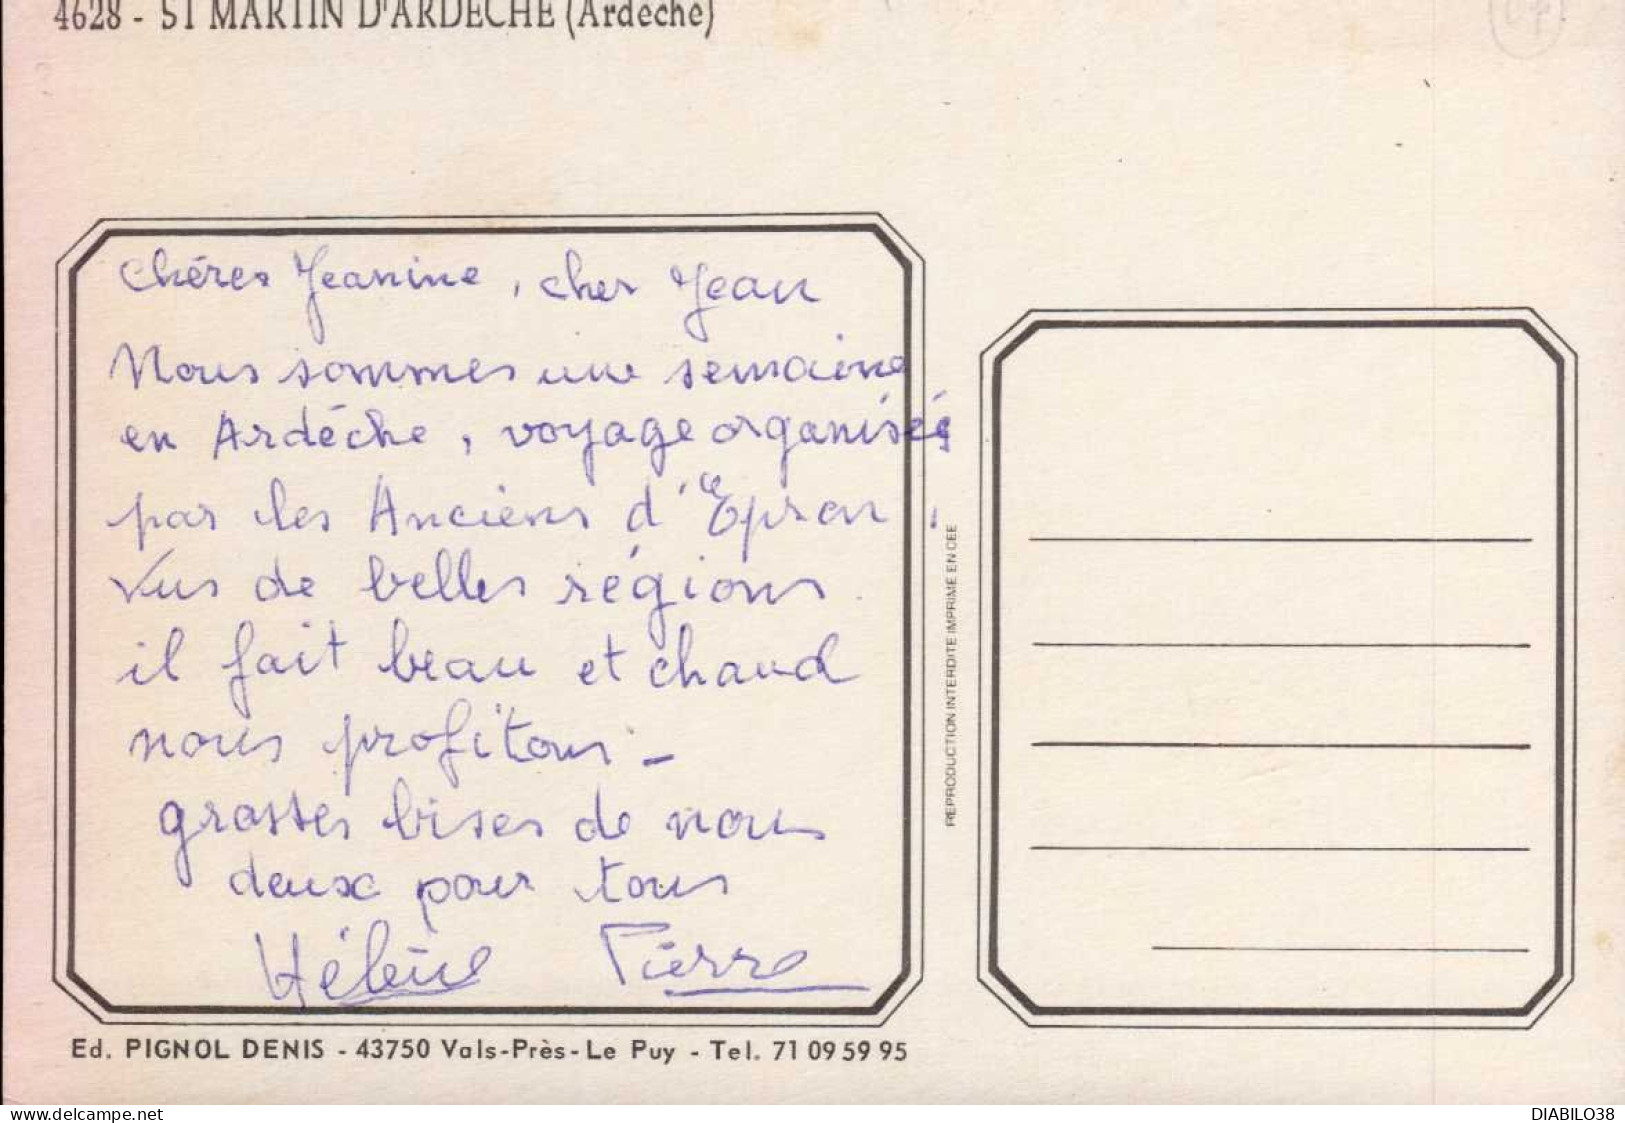 4628 - ST MARTIN D'ARDECHE (Ardèche)
Chéres Jeanine, cher Jean
Nous sommes une semaine
en Ardéche, voyage organisés
par les Anciens d'Epron.
Vus de belles régions.
il fait beau et chaud
nous profitons -
grosses bises de nous
deux pour tous
Hélène Pierre
REPRODUCTION INTERDITE IMPRIME EN CEE
Ed. PIGNOL DENIS - 43750 Vals-Près-Le Puy - Tel. 71 09 59 95
www.delcampe.net
DIABILO38